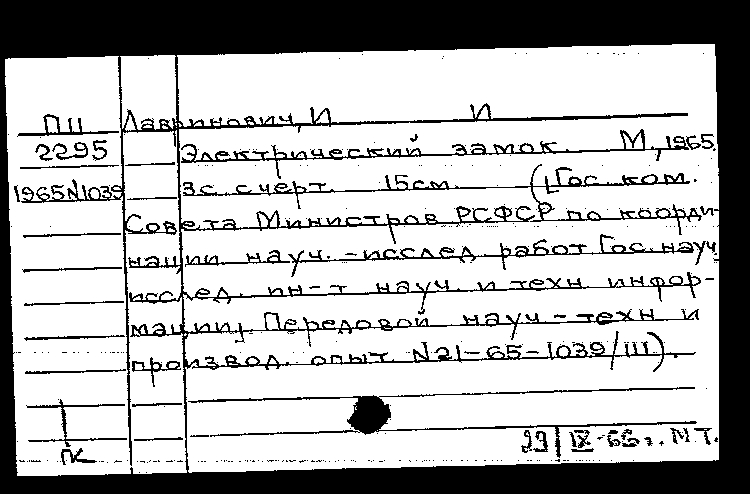 П11 Лавринович, И И
2295 Электрический замок. М., 1965.
1965N1039 3с. с черт. 15см. ([Гос. ком.
Совета Министров РСФСР по коорди-
нации науч. -исслед. работ Гос. науч.
исслед. ин-т науч. и техн. инфор-
мации]. Передовой науч. - техн. и
производ. опыт. N21-65-1039/III).
ГК
29/IX-66г. М Т.